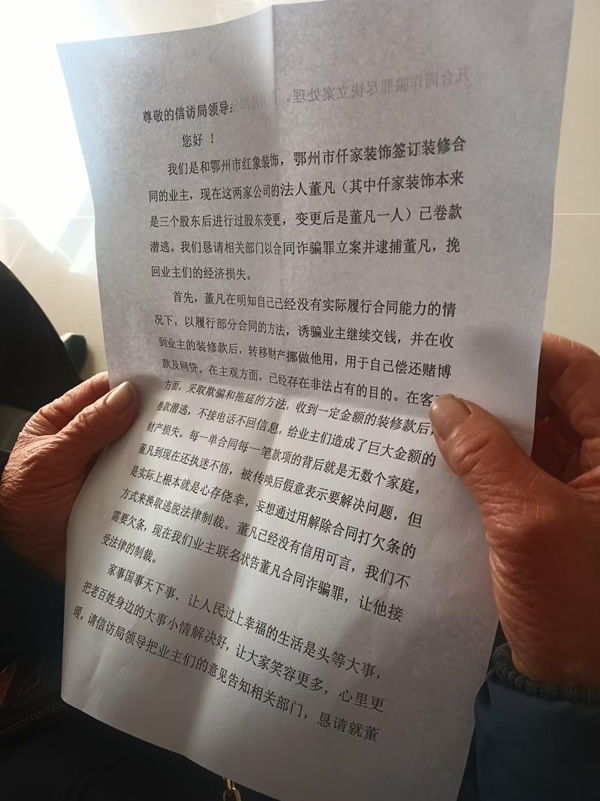 尊敬的信访局领导:
您好！
我们是和鄂州市红象装饰，鄂州市仟家装饰签订装修合
同的业主，现在这两家公司的法人董凡（其中仟家装饰本来
是三个股东后进行过股东变更，变更后是董凡一人）己卷款
潜逃。我们恳请相关部门以合同诈骗罪立案并逮捕董凡，挽
回业主们的经济损失。
首先，董凡在明知自己已经没有实际履行合同能力的情
况下，以履行部分合同的方法，诱骗业主继续交钱，并在收
到业主的装修款后，转移财产挪做他用，用于自己偿还赌博
款及网贷。在主观方面，已经存在非法占有的目的。在客
方面，采取欺骗和拖延的方法，收到一定金额的装修款后，
卷款潜逃，不接电话不回信息，给业主们造成了巨大金额的
财产损失，每一单合同每一笔款项的背后就是无数个家庭，
董凡到现在还执迷不悟，被传唤后假意表示要解决问题，但
是实际上根本就是心存侥幸，妄想通过用解除合同打欠条的
方式来换取逃脱法律制裁。董凡已经没有信用可言，我们不
需要欠条，现在我们业主联名状告董凡合同诈骗罪，让他接
受法律的制裁。
家事国事天下事，让人民过上幸福的生活是头等大事，
把老百姓身边的大事小情解决好，让大家笑容更多，心里更
暖，请信访局领导把业主们的意见告知相关部门，恳请就董
凡合同诈骗罪尽快立案处理。